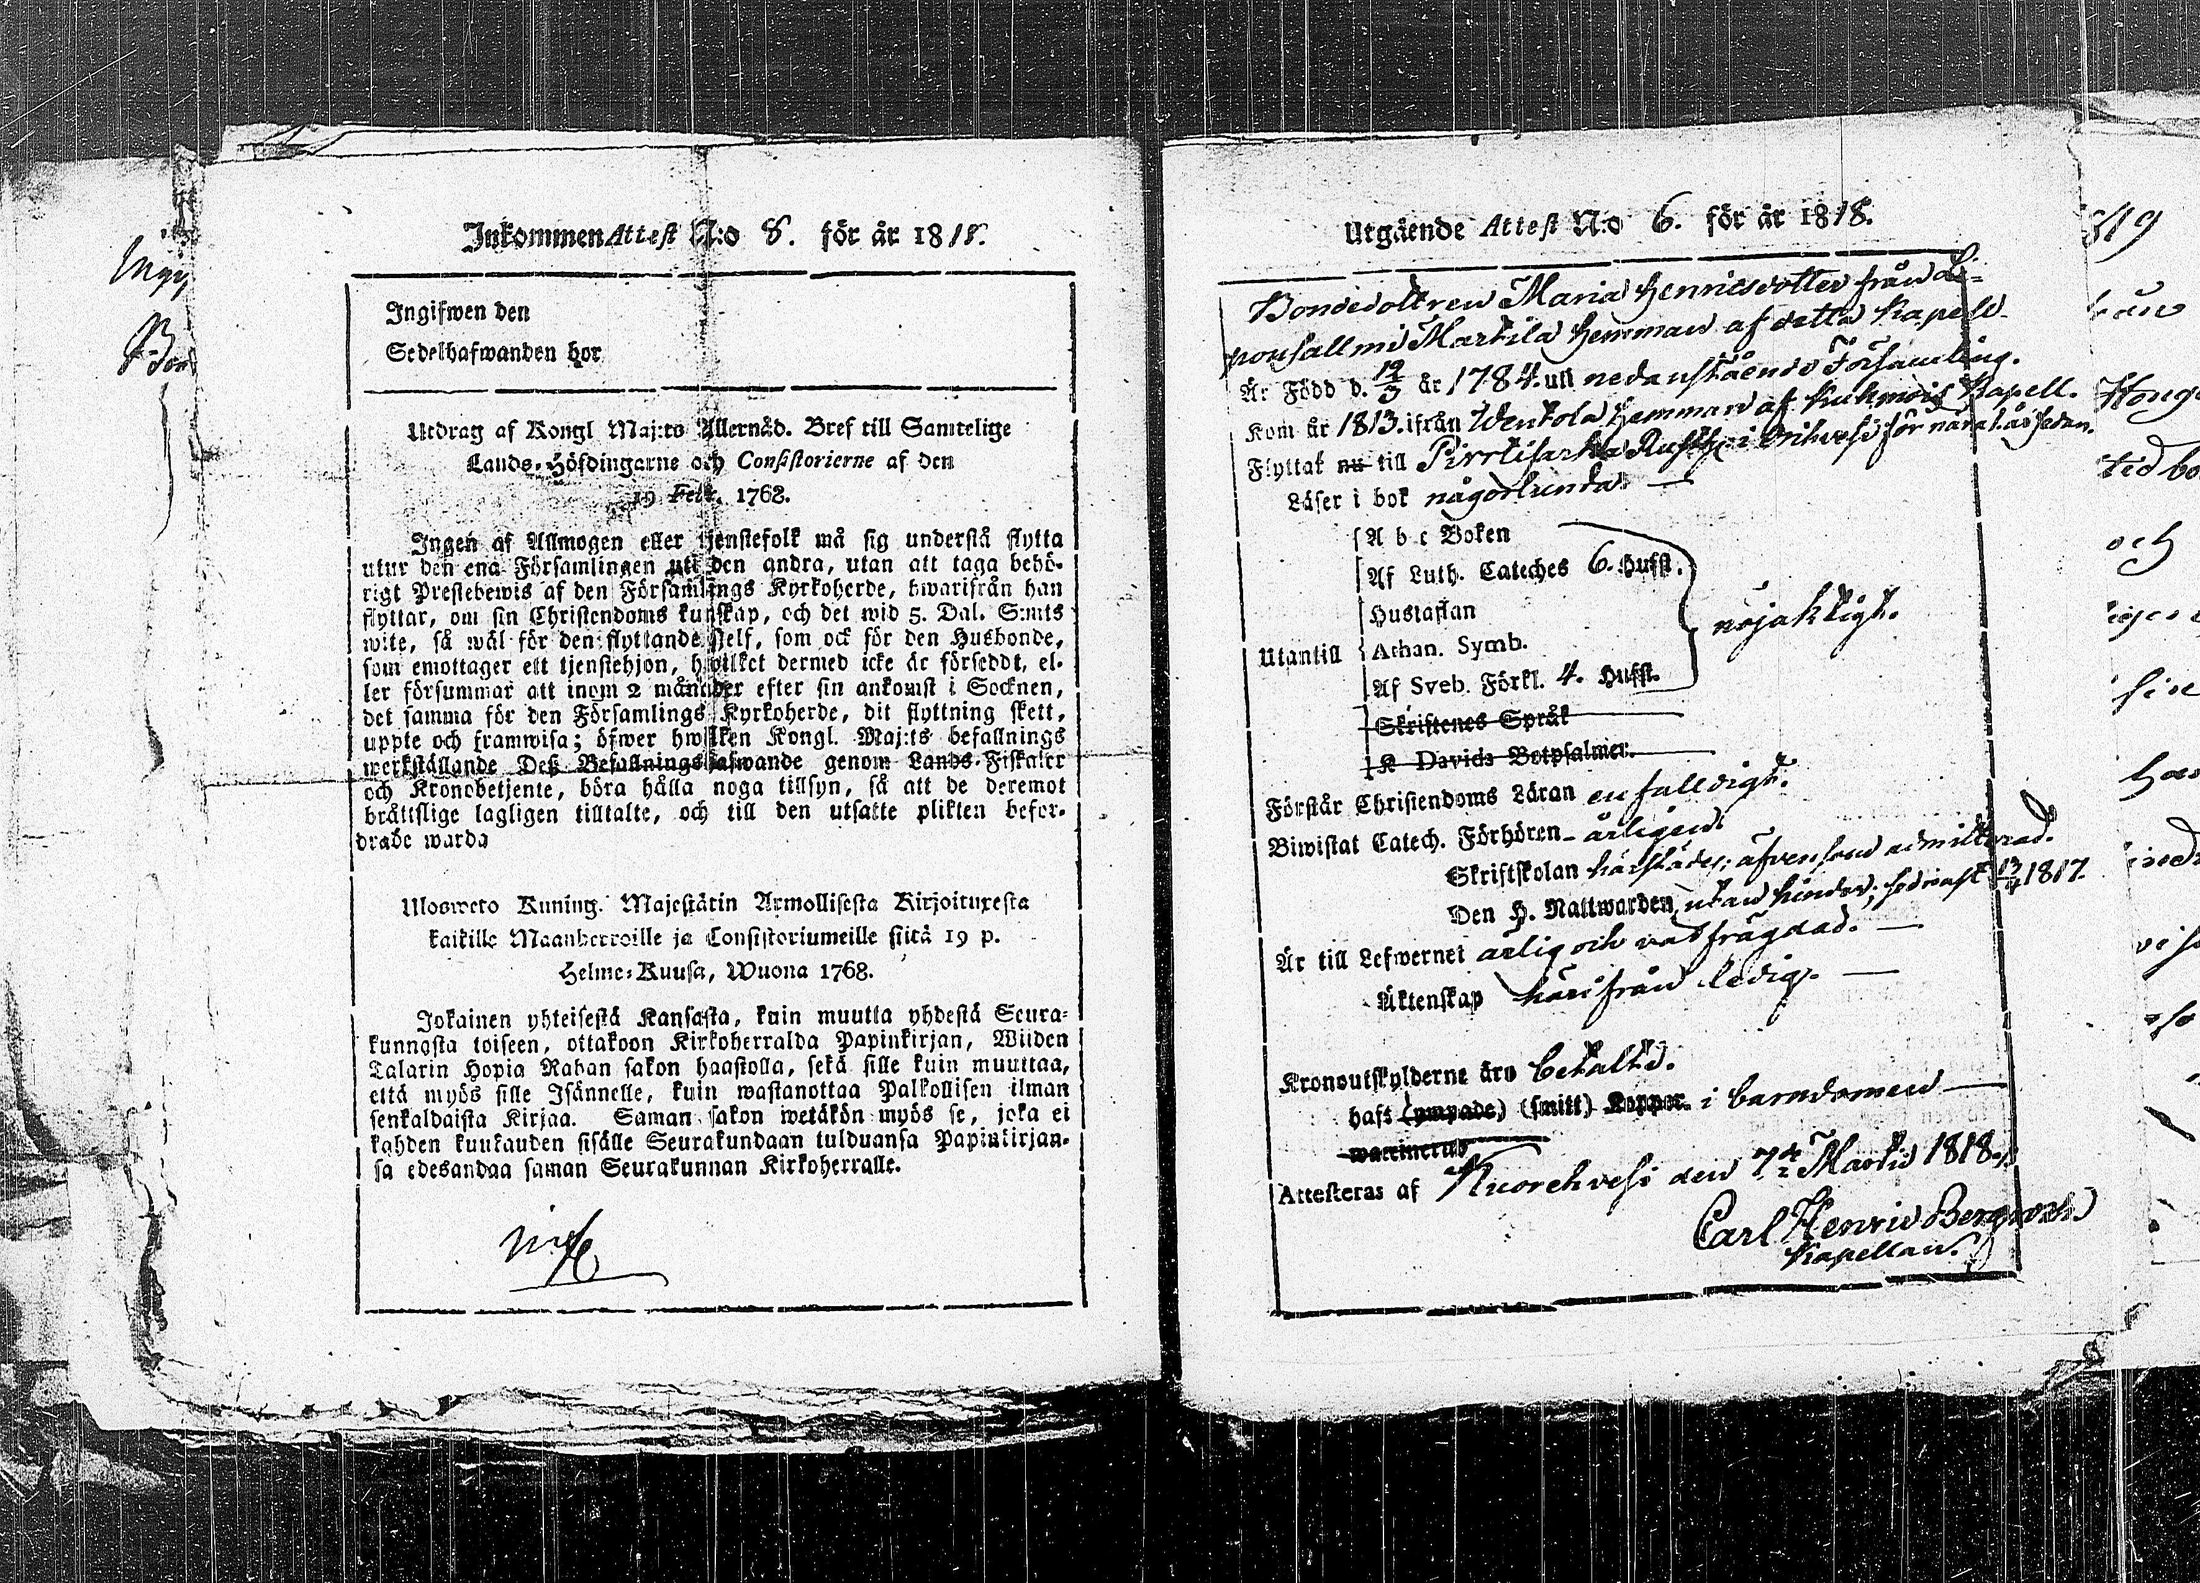 Inkommen Attest N:o 8. för år 1818.
Ingifwen den
Sedelhafwanden hor
Utdrag af Kongl Maj:ts Allernåd. Bref till Samtelige
Lands-Höfdingarne och Consistorierne af den
19 Febr. 1768.
Ingen af Allmogen eller tjenstefolk må sig understå flytta
utur den ena Församlingen uti den andra, utan att taga behö-
rigt Prestebewis af den Församlings Kyrkoherde, hwarifrån han
flyttar, om sin Christendoms kunskap, och det wid 5. Dal. S:mts
wite, så wäl för den flyttande sjelf, som ock för den Husbonde,
som emottager ett tjenstehjon, hwilket dermed icke är försedt, el-
ler försummar att inom 2 månader efter sin ankomst i Socknen,
det samma för den Församlings Kyrkoherde, dit flyttning skett,
uppte och framwisa; öfwer hwilken Kongl. Maj:ts befallnings
werkställande Deß Befallningshafwande genom Lands-Fiskaler
och Kronobetjente, böra hålla noga tillsyn, så att de deremot
bråttslige lagligen tilltalte, och till den utsatte plikten befor-
drade warda
Ulosweto Kuning. Majestätin Armollisesta Kirjoituxesta
kaikille Maanherroille ja Consistoriumeille siitä 19 p.
Helme-Kuusa, Wuona 1768.
Jokainen yhteisestä Kansasta, kuin muutta yhdestä Seura-
kunnasta toiseen, ottakoon Kirkoherralda Papinkirjan, Wiiden
Talarin Hopia Rahan sakon haastolla, sekä sille kuin muuttaa,
että myös sille Isännelle, kuin wastanottaa Palkollisen ilman
senkaldaista Kirjaa. Saman sakon wetäkön myös se, joka ei
kahden kuukauden sisälle Seurakundaan tulduansa Papinkirjan-
sa edesandaa saman Seurakunnan Kirkoherralle.
Utgående Attest N:o 6. för år 1818.
Bondedottren Maria Henricsdotter från Li-
ponsallmi Markila Hemman af detta Kapell.
Är Född d. 12/3 år 1784. uti nedanstående Församling.
Kom år 1813. ifrån Wenkola Hemman af Kuhmois Kapell.
Flyttat nu till Pirttisarka Rusth: i Orihvesi för nära 1. år sedan.
Läser i bok någorlunda. —
A b c Boken
Af Luth. Cateches 6. Hufst.
Hustaflan
Utantill Athan. Symb.
nöjaktigt.
Af Sveb. Förkl. 4. Hufst.
Skriftenes Språk
K Davids Botpsalmer.
Förstår Christendoms Läran enfalldigt.
Biwistat Catech. Förhören årligen.
Skriftskolan härstädes; äfvensom admitterad.
Den H. Nattwarden utan hinder; sednast 13/4 1817.
Är till Lefwernet ärlig och välfrägdad. —
Äktenskap härifrån ledig. —
Kronoutskylderne äro betalte.
haft (ympade) (smitt) Koppor. i barndomen —
waccinerud
Attesteras af Kuorehvesi den 7de Martii 1818.
Carl Henric Bergroth
Kapellan.
819
och